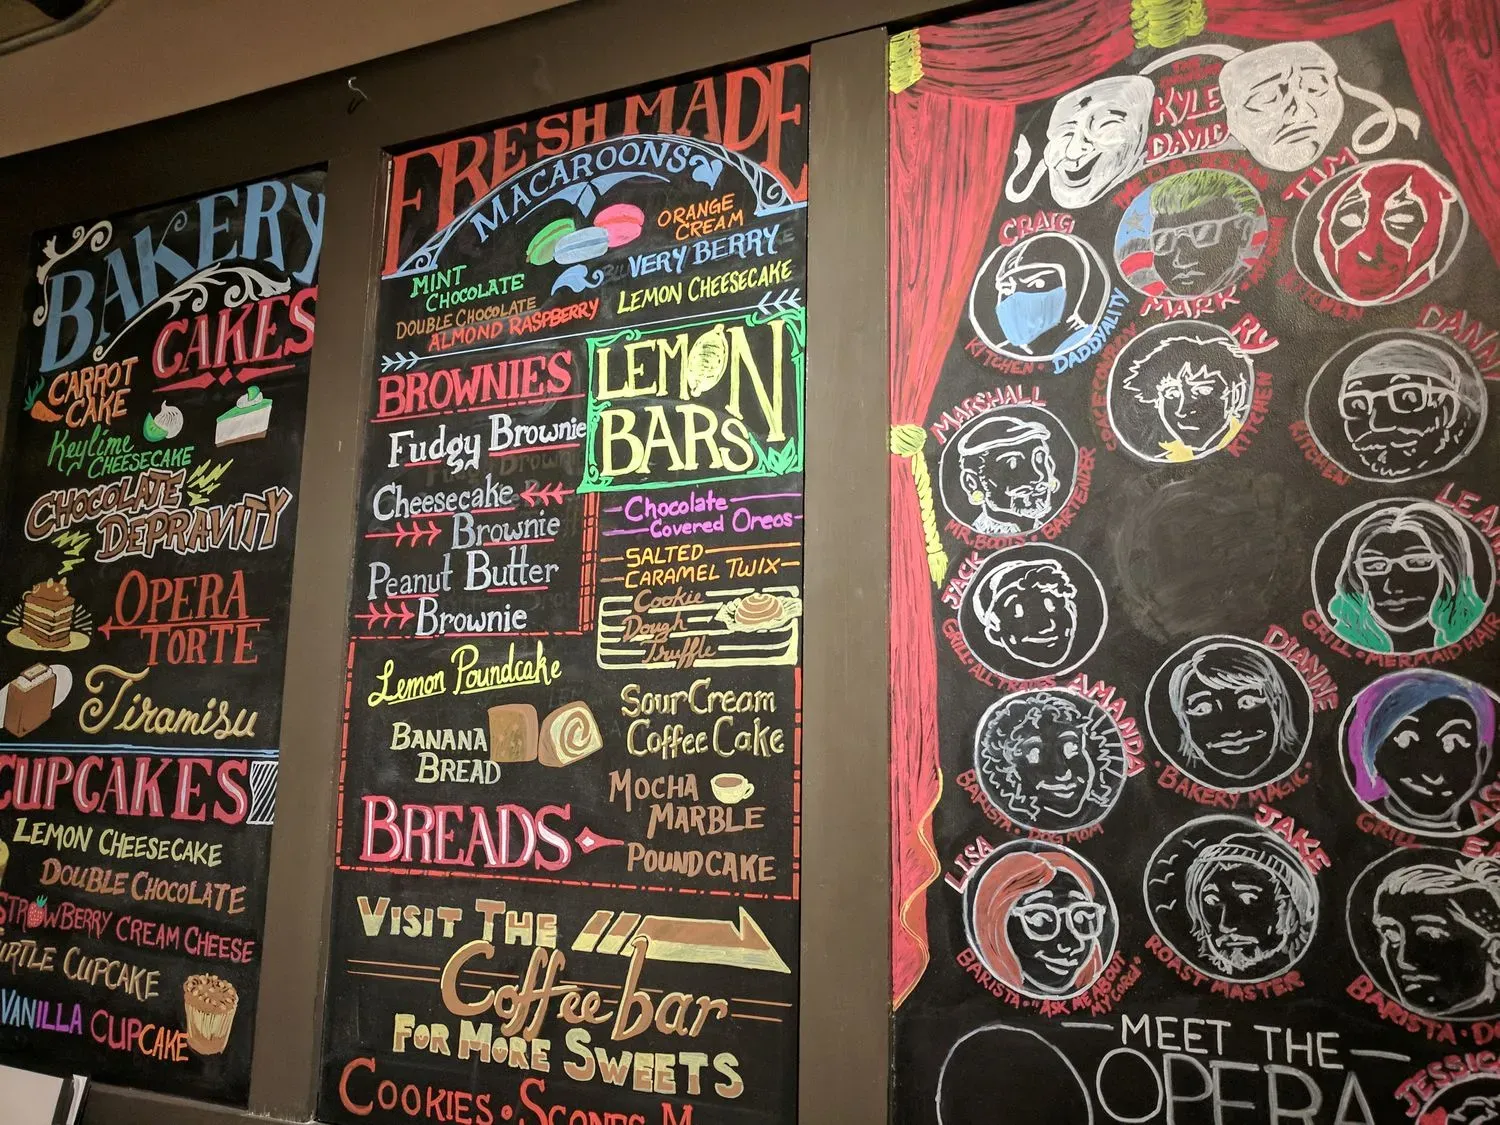 BAKERY
CAKES
CARROT
CAKE
Keylime
CHEESECAKE
CHOCOLATE
DEPRAVITY
OPERA
TORTE
Tiramisu
CUPCAKES
LEMON CHEESECAKE
DOUBLE CHOCOLATE
STRAWBERRY CREAM CHEESE
CUPCAKE
VANILLA CUPCAKE
FRESH MADE
MACAROONS
MINT
CHOCOLATE
DOUBLE CHOCOLATE
ALMOND RASPBERRY
ORANGE
CREAM
VERY BERRY
LEMON CHEESECAKE
BROWNIES
Fudgy Brownie
Cheesecake
Brownie
Peanut Butter
Brownie
LEMON
BARS
Chocolate
Covered Oreos
SALTED
CARAMEL TWIX
Cookie
Dough
Truffle
Lemon Poundcake
BANANA
BREAD
BREADS
Sour Cream
Coffee Cake
MOCHA
MARBLE
POUNDCAKE
VISIT THE
Coffee bar
FOR MORE SWEETS
COOKIES • SCONES
THE
KYLE
DAVID
CRAIG
KITCHEN • DADDYALITY
MARK
TIM
KITCHEN
MARSHALL
MR. BOOTS • BARTENDER
RU
SPACE COWBOY
KITCHEN
KITCHEN
JACK
GRILL • ALL TRADES
GRILL • MERMAID HAIR
AMANDA
BARISTA • DOG MOM
DIANNE
• BAKERY MAGIC •
GRILL
LISA
BARISTA • "ASK ME ABOUT
MY CORGI"
JAKE
ROAST MASTER
BARISTA
MEET THE
OPERA